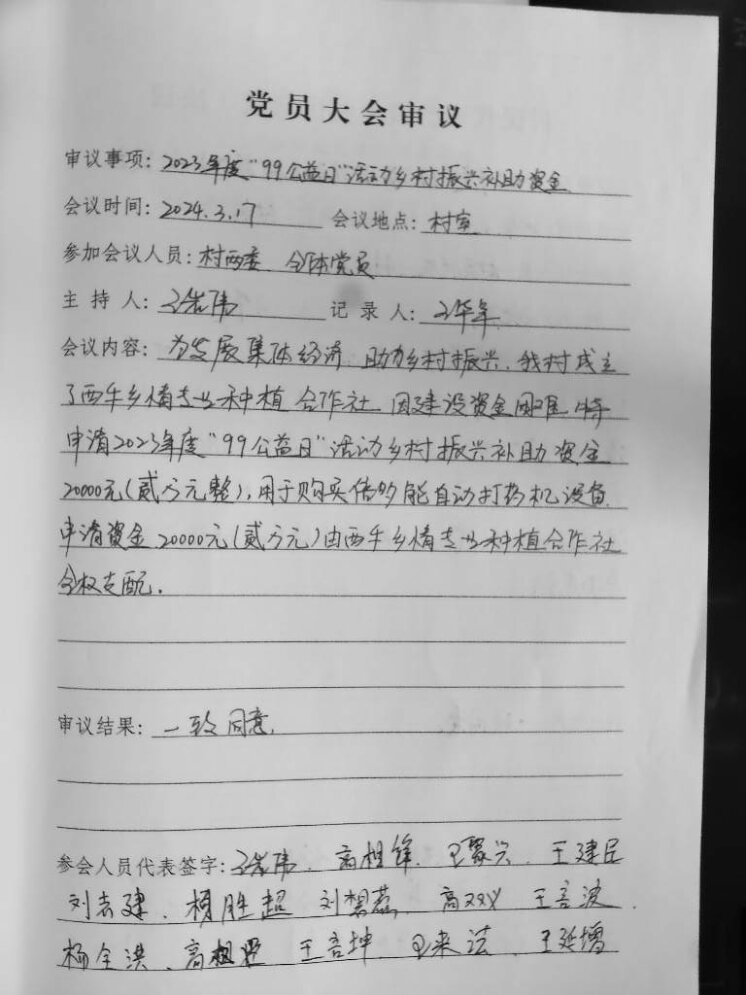 党员大会审议
审议事项：2023年度“99公益日”活动乡村振兴补助资金
会议时间：2024.3.17 会议地点：村室
参加会议人员：村两委 全体党员
主持人：王岩伟 记录人：王华年
会议内容：为发展集体经济，助力乡村振兴，我村成立
了西牛乡情专业种植合作社，因建设资金困难，特
申请2023年度“99公益日”活动乡村振兴补助资金
20000元（贰万元整），用于购买倍多能自动打药机设备，
申请资金20000元（贰万元）由西牛乡情专业种植合作社
全权支配。
审议结果：一致同意，
参会人员代表签字：王岩伟、高相锋、王聚兴、王建民
刘志建、杨胜超 刘想蕊、高双义 王言波、
杨全洪、高 王言坤、王来法、王延增